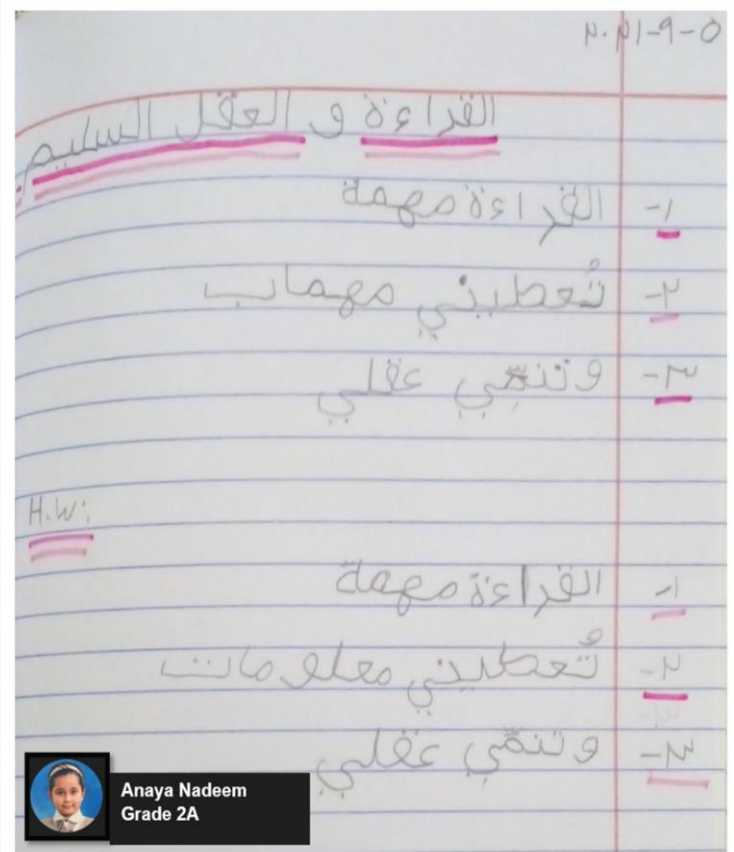 ٢٠٢١-٩-٥
القراءة و العقل السليم
١- القراءة مهمة
٢- تُعطيني مهماب
٣- وتنمّي عقلي
H.W:
١- القراءة مهمة
٢- تُعطيني معلومات
٣- وتنمّي عقلي
Anaya Nadeem
Grade 2A